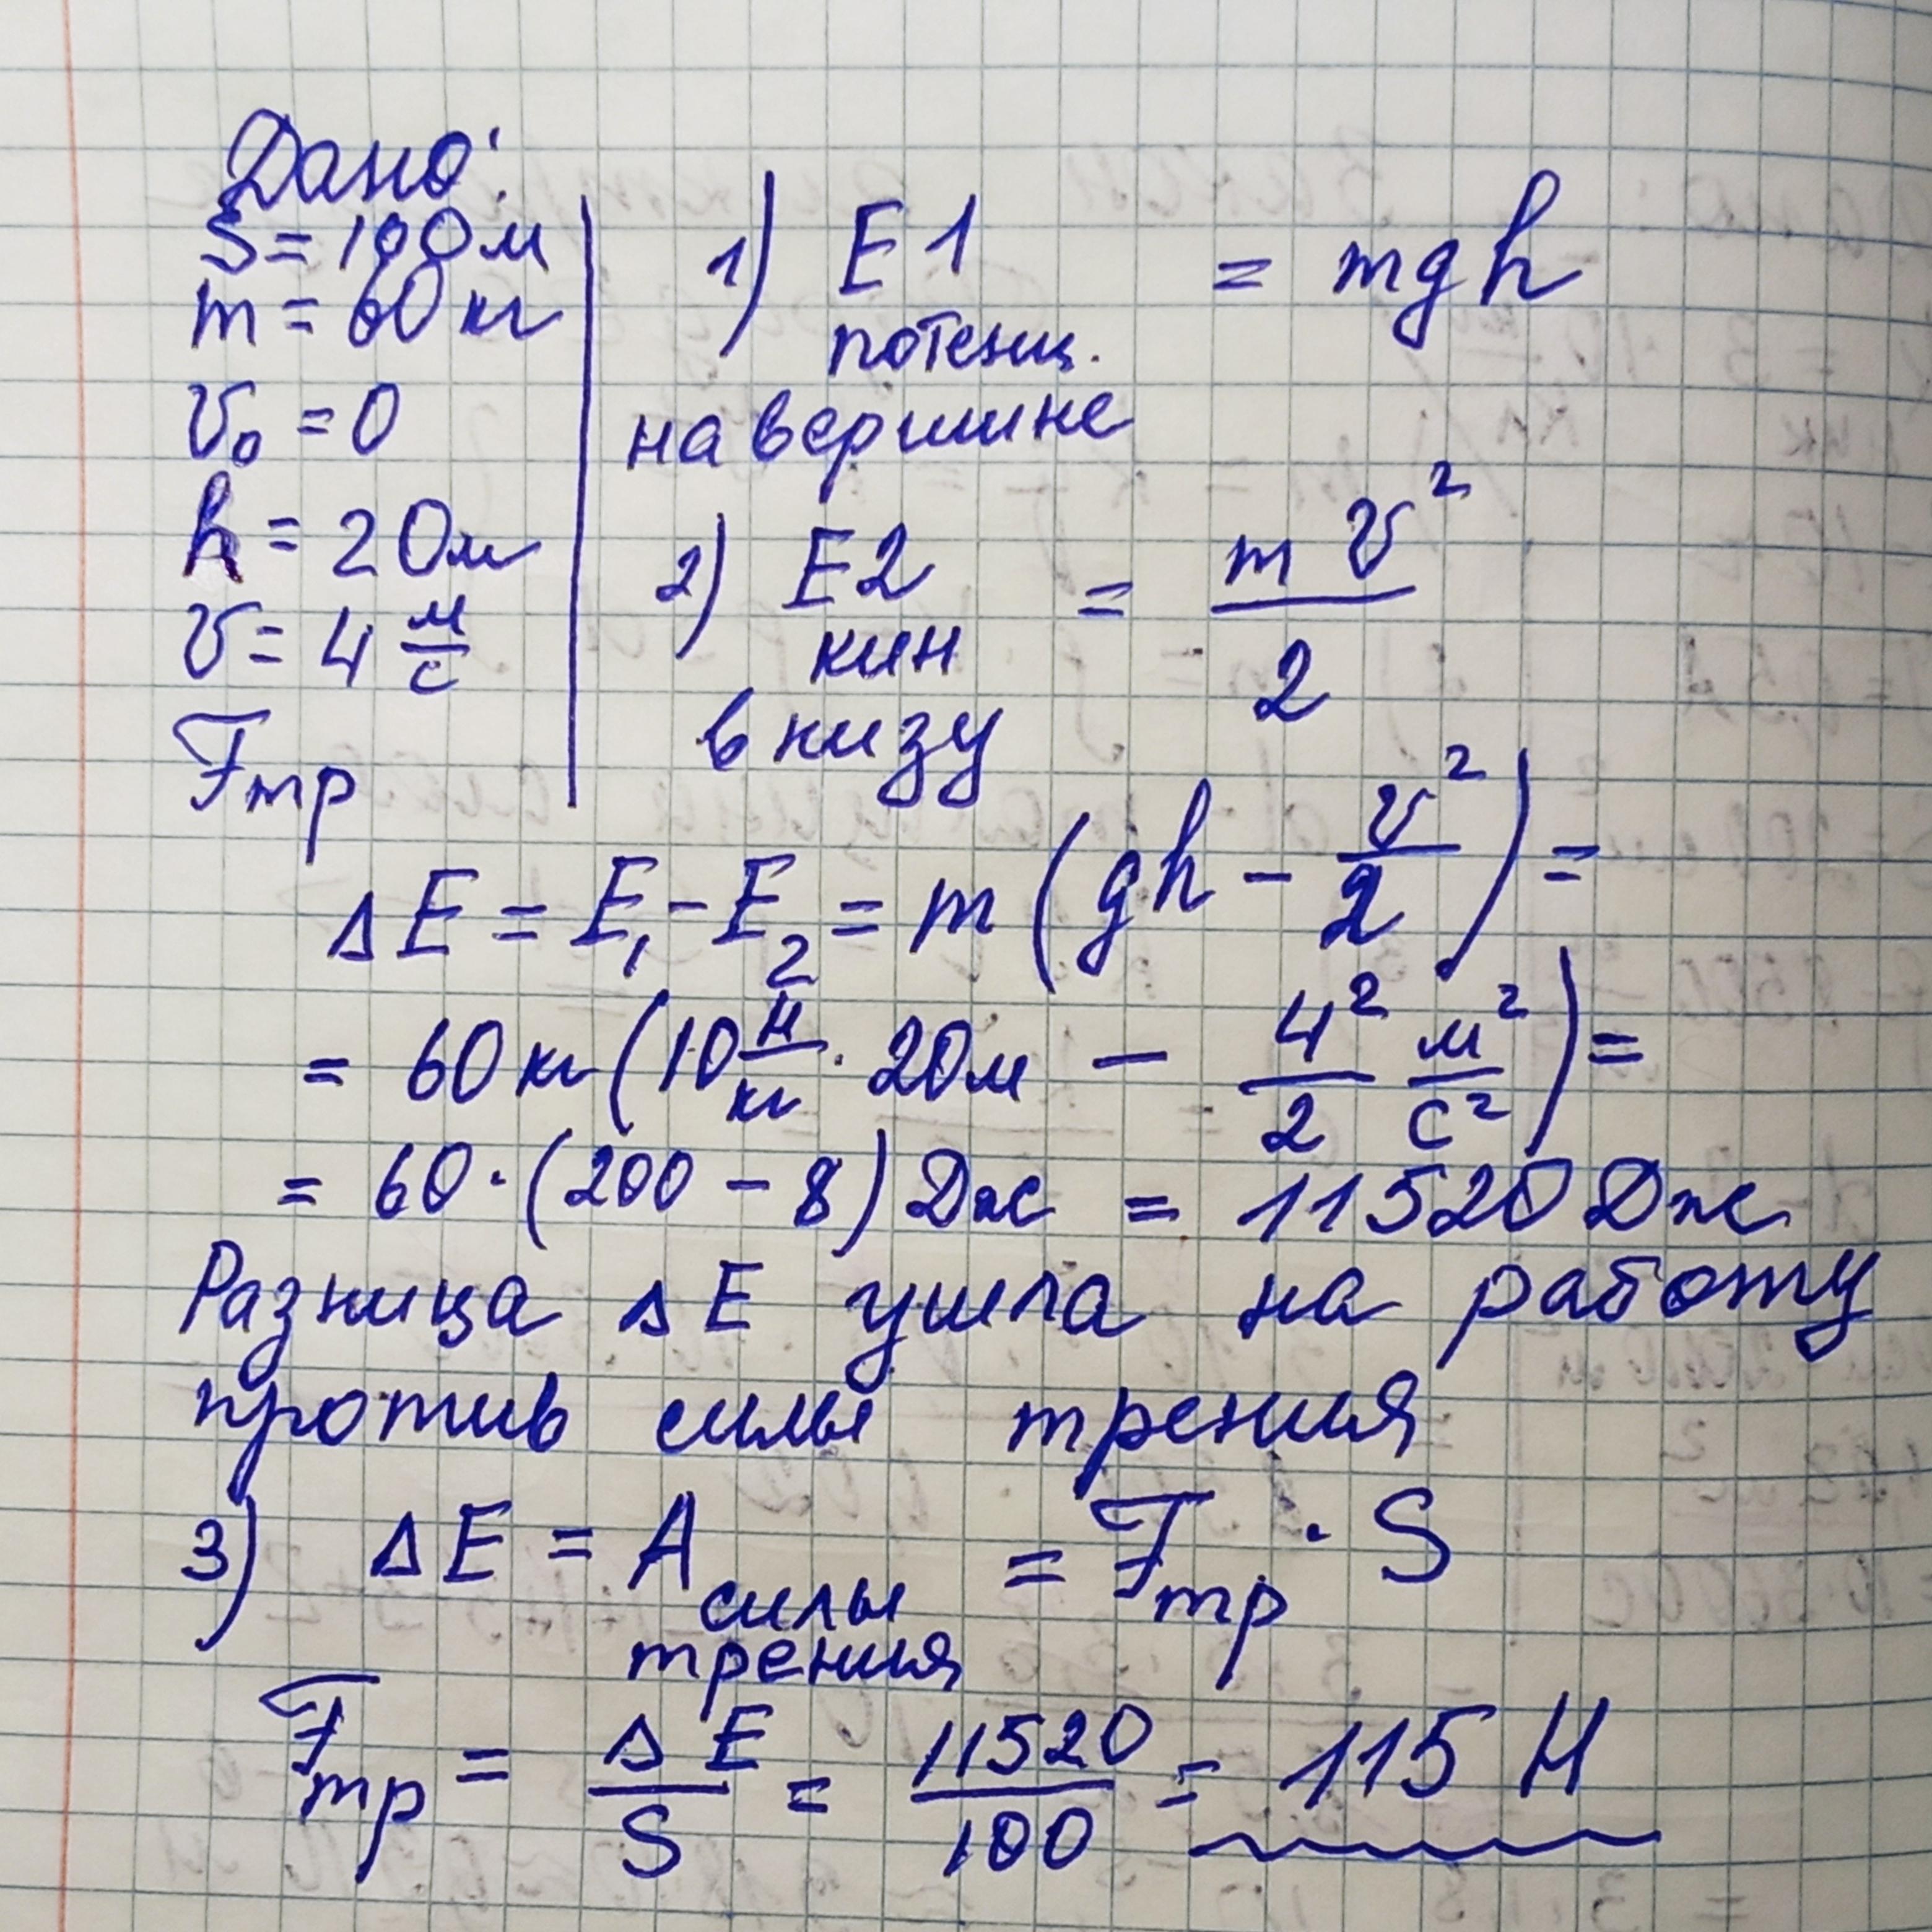 Дано:
S = 100 м
m = 60 кг
v₀ = 0
h = 20 м
v = 4 м/с
Fтр
1) E1 потенц. на вершине = mgh
2) E2 кин внизу = mv²/2
ΔE = E₁ - E₂ = m(gh - v²/2) =
= 60 кг (10 Н/кг · 20 м - 4²/2 м²/с²) =
= 60 · (200 - 8) Дж = 11520 Дж
Разница ΔE ушла на работу
против силы трения
3) ΔE = A силы трения = Fтр · S
Fтр = ΔE/S = 11520/100 = 115 Н